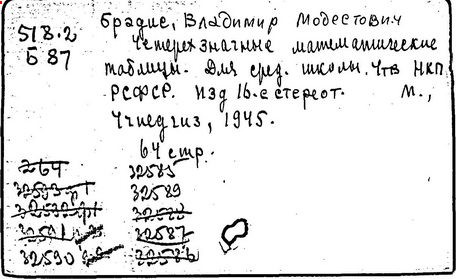 518.2
Б 87
Брадис, Владимир Модестович
Четырехзначные математические
таблицы. Для сред. школы. Утв НКП
РСФСР. Изд 16-е стереот. М.,
Учпедгиз, 1945.
64 стр.
264 32585
32589
32587
32590